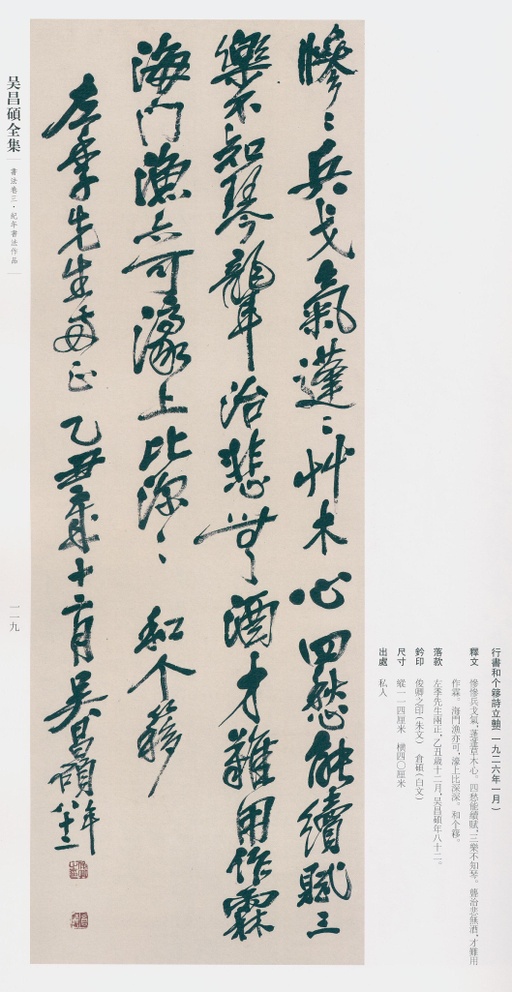 行書和个簃詩立軸(一九二六年一月)
釋文 慘慘兵戈氣,蓬蓬草木心。四愁能續賦,三樂不知琴。聾治悲無酒,才難用
作霖。海門漁亦可,濠上比深深。和个簃。
落款 左季先生兩正,乙丑歲十二月,吳昌碩年八十二。
鈐印 俊卿之印(朱文) 倉碩(白文)
尺寸 縱一一四厘米 橫四〇厘米
出處 私人
慘〻兵戈氣蓬〻艸木心四愁能續賦三
樂不知琴聾治悲無酒才難用作霖
海門漁亦可濠上比深〻 和个簃
左季先生兩正 乙丑歲十二月吳昌碩年八十二
吴昌碩全集 書法卷三·紀年書法作品
一一九